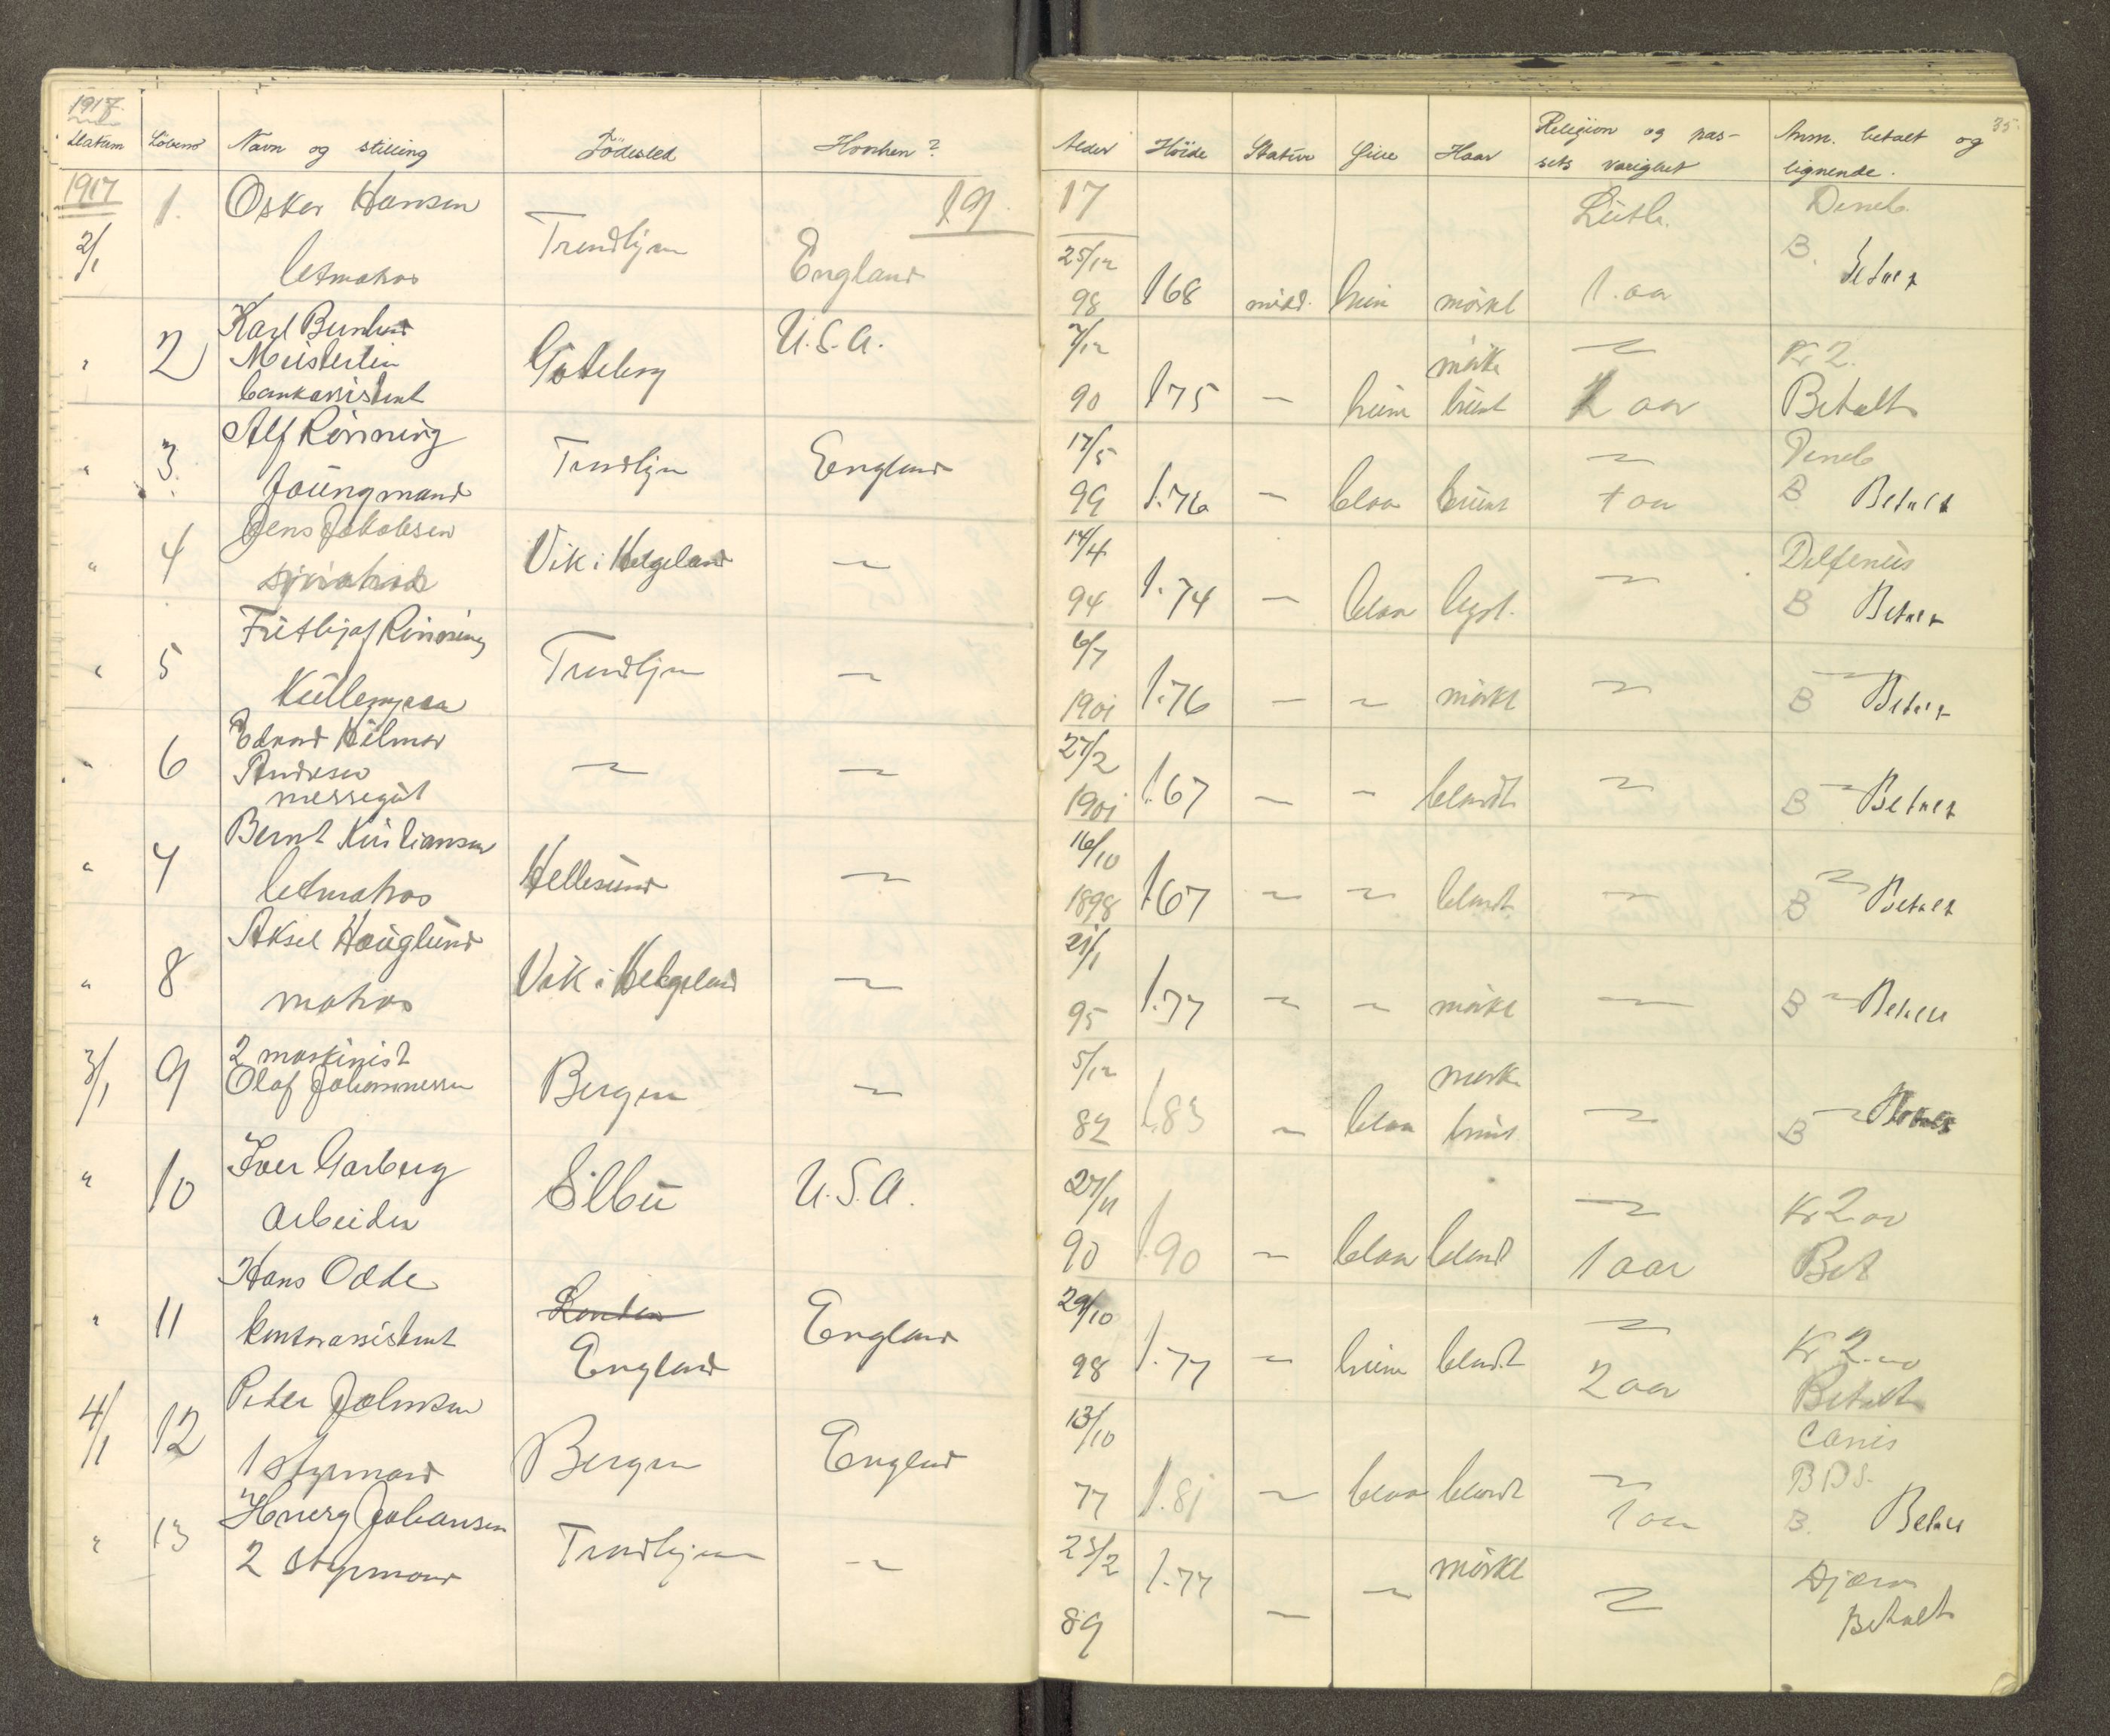 1917.
Datum Löbenr Navn og stilling Födested Hvorhen? Alder Höide Statur Öine Haar Religion og pas- Anm. betalt og 35.
sets varighet lignende.
1917 1. Oskar Hansen 19 17 Luth. Deneb
2/1 letmatros Trondhjem England 25/12 98 168 midd. brun mörkt 1. aar B. Betalt
" 2 Karl
bankassistent Göteborg U.S.A. 7/12 90 175 — brune mörke brunt 1 aar Kr 2. Betalt
" 3. Alf Rönning
Joungmand Trondhjem England 17/5 99 1.76 — blaa brunt 1 aar Deneb B Betalt
" 4 Jens Jakobsen
Vik i Helgeland — 14/4 94 1.74 — blaa lyst. — Delfinus B Betalt
" 5 Fritbjof Rönning
Trondhjem — 6/7 1901 1.76 — — mörkt — B — Betalt
" 6 Edvard Hilmar
Andresen
messegut — — 27/2 1901 1.67 — — blondt — B — Betalt
" 7 Bernt Kristiansen
letmatros Hellesund — 16/10 1898 167 — — blondt — B — Betalt
" 8 Aksel Houglund
matros Vik i Helgeland — 21/1 95 1.77 — — mörkt — B — Betalt
3/1 9 2 maskinist
Olaf Johannessen Bergen — 5/12 82 1.83 — blaa mörk brunt — B — Betalt
" 10 Iver Garberg
Arbeider Selbu U.S.A. 27/11 90 1.90 — blaa blond — 1 aar Kr 2 00 Bet
" 11 Hans Odde
kontorassistent London England England 29/10 98 1.77 — brune blondt — 2 aar Kr 2.00 Betalt
4/1 12 Peter Johnsen
1 styrmand Bergen England 13/10 77 1.81 — blaa blondt — 1 aar Canis BDS. B. Betalt
" 13 Johansen
2 styrmand Trondhjem — 25/2 89 1.77 — — mörkt — Betalt